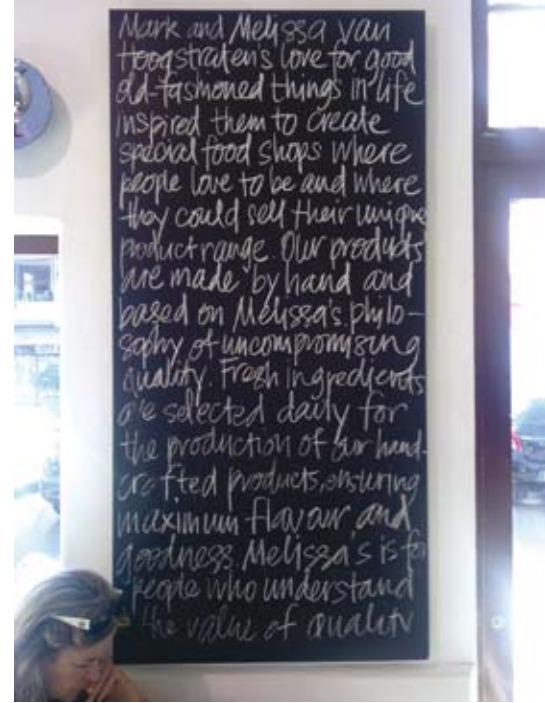 Mark and Melissa van
Hoogstraten's love for good
old-fashioned things in life
inspired them to create
special food shops where
people love to be and where
they could sell their unique
product range. Our products
are made by hand and
based on Melissa's philo-
sophy of uncompromising
quality. Fresh ingredients
are selected daily for
the production of our hand-
crafted products, ensuring
maximum flavour and
goodness. Melissa's is for
people who understand
the value of quality